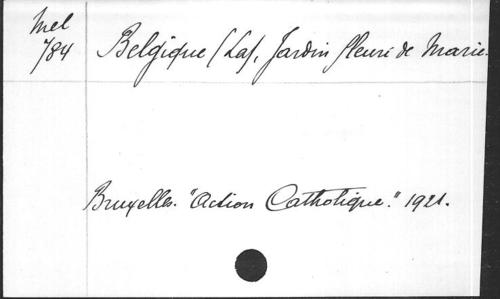 Mel
784
Belgique (La), Jardin fleuri de Marie.
Bruxelles. "Action Catholique." 1921.